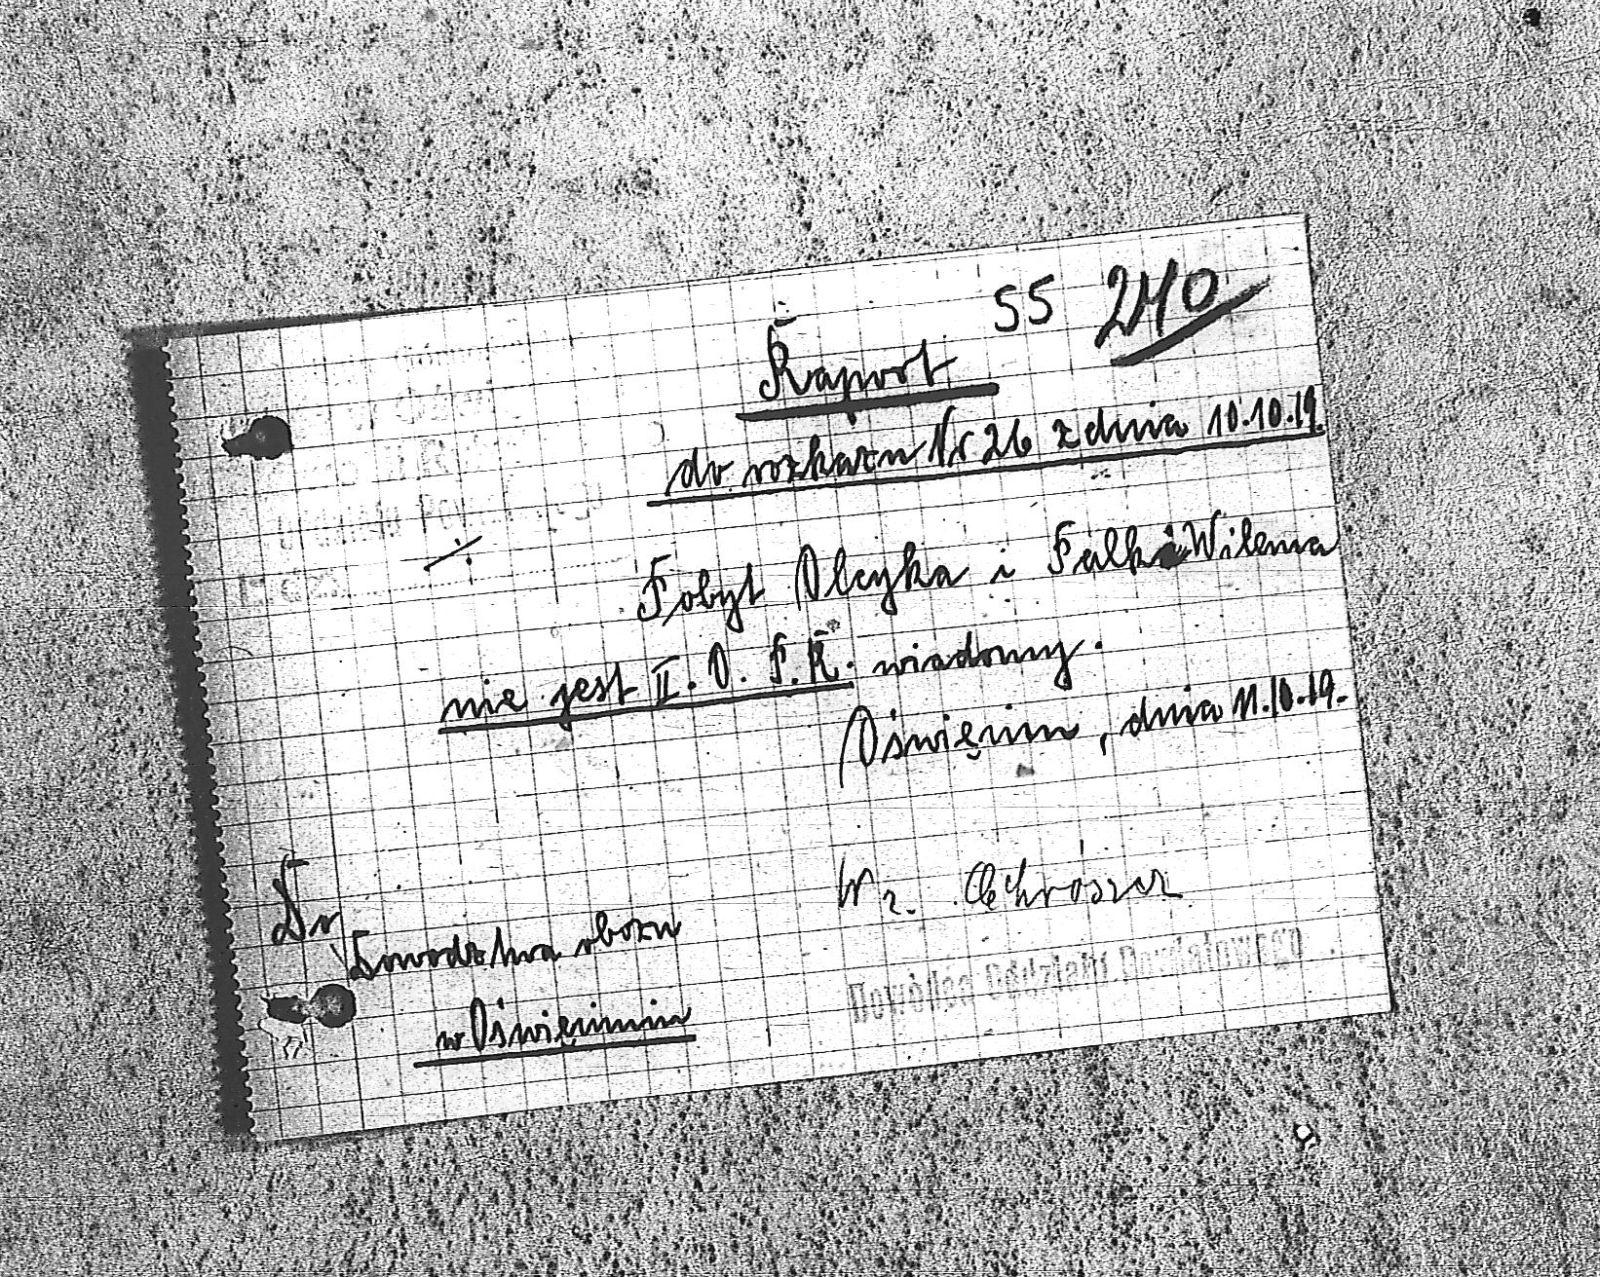 55 240
Raport
do rozkazu Nr 26 z dnia 10.10.19.
Pobyt Olcyka i Falka Wilema
nie jest II. O. P. K. wiadomy.
Oświęcim, dnia 11.10.19.
Do
Dowództwa obozu
w Oświęcimiu
Wz.
Dowódca Oddziału Powiatowego